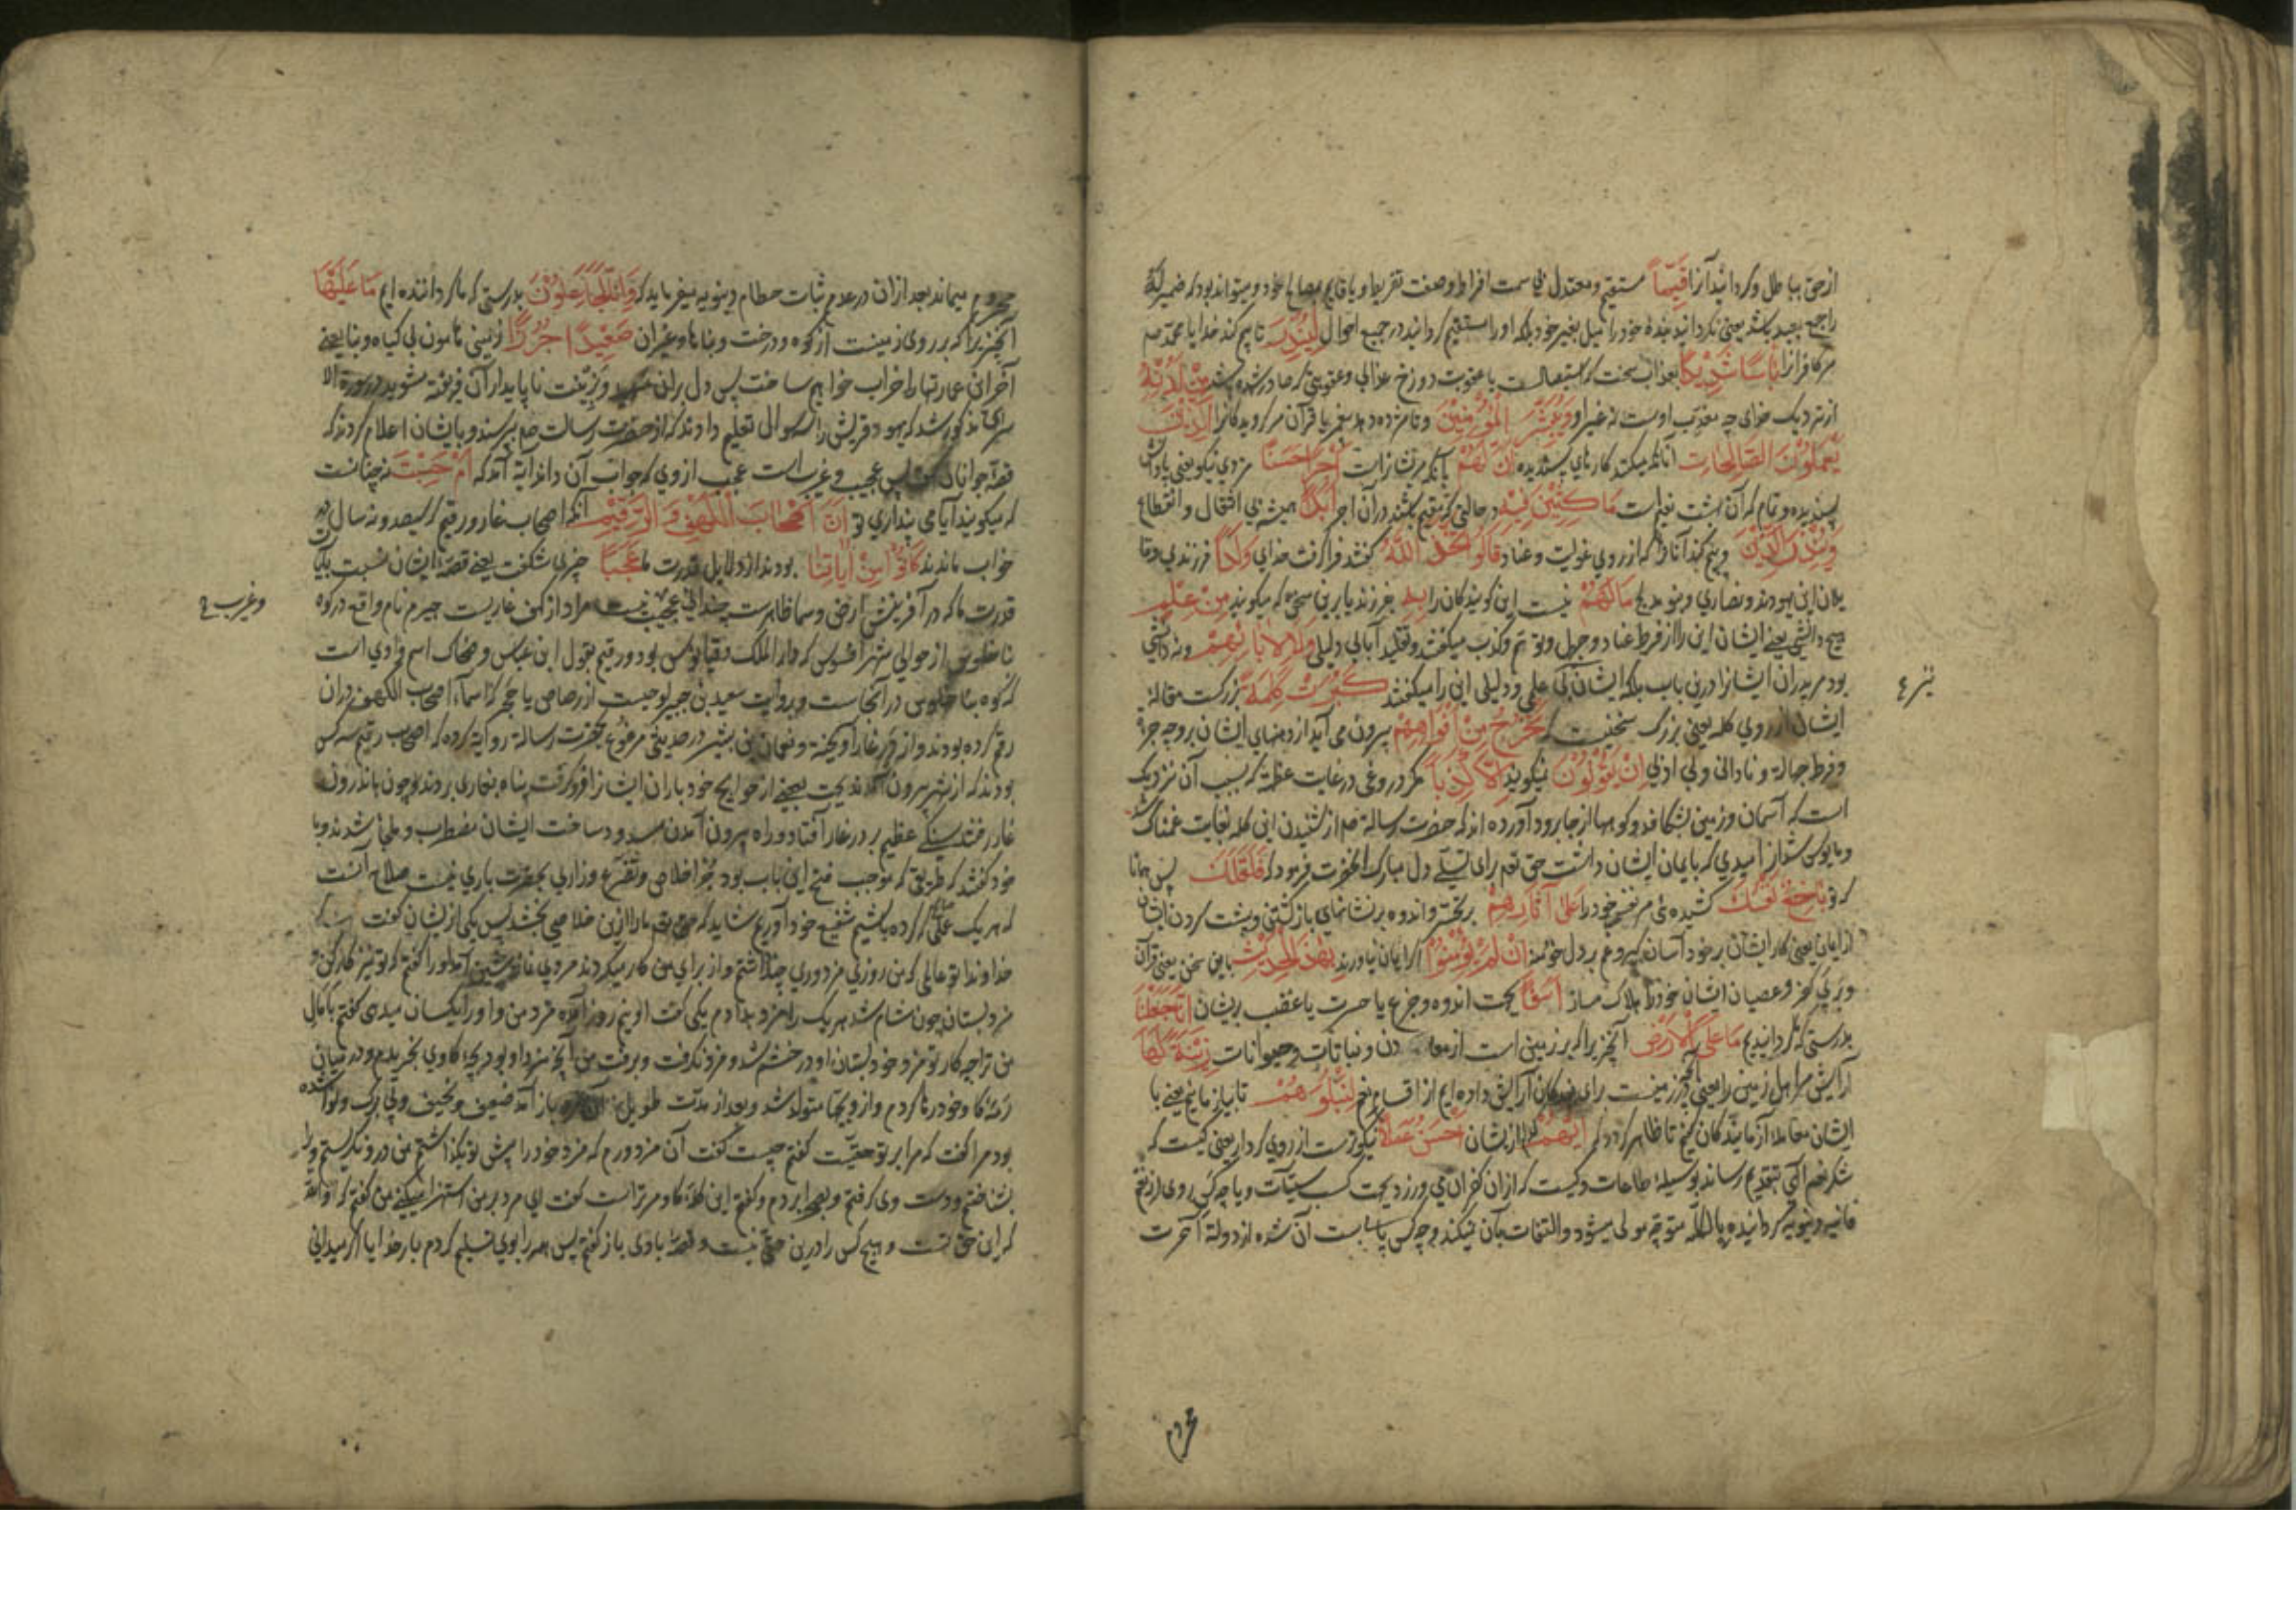 از حق بباطل وگردانید آنرا قَيِّمًا مستقیم ومعتدل بی سمت افراط وصفت تفریط ویا قایم بمصالح خود ومیتواند بود که ضمیر له
راجع بعبد باشد یعنی نگردانید بنده خود را میل بغیر خود بلکه او را مستقیم گردانید در جمیع احوال لِيُنْذِرَ تا بیم کند خدایا محمد صم
مر کافرانرا بَأْسًا شَدِيدًا بعذاب سخت که استیصالست یا عقوبت دوزخ عذابی وعقوبتی که صادر شده باشد مِنْ لَدُنْهُ
از نزدیک خدای چه معذب اوست نه غیر او وَيُبَشِّرَ الْمُؤْمِنِينَ وتا مژده دهد پیغمبر یا قرآن مر گرویدگانرا الَّذِينَ
يَعْمَلُونَ الصَّالِحَاتِ آنانکه میکنند کارهای پسندیده أَنَّ لَهُمْ بآنکه مر ایشانراست أَجْرًا حَسَنًا مزدی نیکو یعنی پاداش
پسندیده وتمام که آن بهشت نعیم است مَاكِثِينَ فِيهِ در حالتی که مقیم باشند در آن اجر أَبَدًا همیشه بی انتقال وانقطاع
وَيُنْذِرَ الَّذِينَ وبیم کند آنانرا که از روی غوایت وعناد قَالُوا اتَّخَذَ اللَّهُ گفتند فرا گرفت خدای وَلَدًا فرزندی
این یهودند ونصاری وبنو مدلج مَا لَهُمْ نیست این گویندگانرا بِهِ بفرزند یا برین سخن که میگویند مِنْ عِلْمٍ
هیچ دانشی یعنی ایشان این را از فرط عناد وجهل وتوهم وکذب میگفتند وتقلید آبا بی دلیلی وَلَا لِآبَائِهِمْ ونه دانشی
بود مر پدران ایشانرا درین باب بلکه ایشان بی علمی ودلیلی این را میگفتند كَبُرَتْ كَلِمَةً بزرگست مقاله
ایشان از روی کلمه یعنی بزرگ سخنیست که تَخْرُجُ مِنْ أَفْوَاهِهِمْ بیرون می آید از دهنهای ایشان بر وجه جرءة
وفرط جهالة ونادانی وبی ادبی إِنْ يَقُولُونَ نمیگویند إِلَّا كَذِبًا مگر دروغی در غایت عظمة که بسبب آن نزدیک
است که آسمان وزمین بشکافد وکوهها از جا برود آورده اند که حضرت رسالة صم از شنیدن این کلمه بغایت غمناک شد
ومایوس شد از امیدی که بایمان ایشان داشت حق تعم برای تسلی دل مبارک آنحضرت فرمود که فَلَعَلَّكَ پس همانا
که تو بَاخِعٌ نَفْسَكَ کشنده مر نفس خود را عَلَى آثَارِهِمْ بر تحسر واندوه بر نشانهای بازگشتن وپشت کردن ایشان
از ایمان یعنی کار ایشان بر خود آسان گیر وغم بر دل خود منه إِنْ لَمْ يُؤْمِنُوا اگر ایمان نیاورند بِهَذَا الْحَدِيثِ باین سخن یعنی قرآن
وبر پی کفر وعصیان ایشان خود را هلاک مساز أَسَفًا بجهت اندوه وجزع یا حسرت یا غضب بریشان إِنَّا جَعَلْنَا
بدرستی که ما گردانیدیم مَا عَلَى الْأَرْضِ آنچیز را که بر زمین است از معادن ونباتات وحیوانات زِينَةً لَهَا
آرایش مر اهل زمین را یعنی آنچه در زمینست برای بندگان آرایش داده ایم از اقسام نعم لِنَبْلُوَهُمْ تا بیازماییم یعنی با
ایشان معامله آزمایندگان کنیم تا ظاهر گردد که أَيُّهُمْ کدام از ایشان أَحْسَنُ عَمَلًا نیکوترست از روی کردار یعنی کیست که
شکر نعم الهی بتقدیم رساند بوسیله طاعات وکیست که از آن کفران می ورزد بجهت کسب سیئات ویا چه کس روی از نعم
فانیه دنیویه گردانیده بالکلیه متوجه مولی میشود والتفات بآن نمیکند وچه کس پای بست آن شده از دولة آخرت
تبر ع
محروم
محروم میماند بعد از آن در عدم ثبات حطام دنیویه میفرماید که وَإِنَّا لَجَاعِلُونَ بدرستی که ما گرداننده ایم مَا عَلَيْهَا
آنچیز را که بر روی زمینست از کوه ودرخت وبناها وغیر آن صَعِيدًا جُرُزًا زمینی هامون بی گیاه وبنا یعنی
آخر این عمارتها را خراب خواهیم ساخت پس دل بر آن منهید وبزینت ناپایدار آن فریفته مشوید در سورة الا
سری مذکور شد که یهود قریش را سه سوال تعلیم دادند که از حضرت رسالت صم بپرسند وبایشان اعلام کردند که
قصه جوانان بس عجیب وغریبست عجب از وی که جواب آن داند آیة آمد که أَمْ حَسِبْتَ نه چنانست
که میگویند آیا می پنداری تو أَنَّ أَصْحَابَ الْكَهْفِ وَالرَّقِيمِ آنکه اصحاب غار ورقیم که سیصد ونه سال در
خواب ماندند كَانُوا مِنْ آيَاتِنَا بودند از دلایل قدرت ما عَجَبًا چیزی شگفت یعنی قصه ایشان نسبت بکمال
قدرت ما که در آفرینش ارض وسما ظاهرست چندانی عجیب نیست مراد از کهف غاریست جیرم نام واقع در کوه
وغریب
بناخلوس از حوالی شهر افسوس که دار الملک دقیانوس بود ورقیم بقول ابن عباس وضحاک اسم وادی است
که کوه بناخلوس در آنجاست وبروایت سعید بن جبیر لوحیست از رصاص یا حجر که اسماء اصحاب الکهف در آن
رقم کرده بودند واز در غار آویخته ونعمان بن بشیر در حدیثی مرفوع بحضرت رسالة روایة کرده که اصحاب رقیم سه کس
بودند که از شهر بیرون آمدند بجهت بعضی از حوایج خود باران ایشانرا فرو گرفت پناه بغاری بردند وچون باندرون
غار رفتند سنگی عظیم بر در غار افتاد وراه بیرون آمدن مسدود ساخت ایشان مضطرب وملجا شدند وبا
خود گفتند که طریقی که موجب فتح این باب بود بجز اخلاص وتضرع وزاری بحضرت باری نیست صلاح آنست
که هر یک عملی که کرده باشیم شفیع خود آوریم شاید که حق تعم ما را ازین خلاصی بخشد پس یکی از ایشان گفت
خداوندا تو عالمی که من روزی مزدوری چند داشتم واز برای من کار میکردند مردی آمد او را گفتم که تو نیز کار کن و
مزد بستان چون شام شد هر یک را مزد بدادم یکی گفت او نیم روز آمده مزد من واو را یکسان میدهی گفتم با مال
من ترا چه کار تو مزد خود بستان او در خشم شد ومزد نگرفت وبرفت من بآنچه مزد او بود بچه گاوی بخریدم ودر میان
رمه گاو خود رها کردم واز وی بچها متولد شد وبعد از مدت طویل آن مرد باز آمد ضعیف ونحیف وبی برگ ونوا شده
بود مرا گفت که مرا بر تو حقیست گفتم چیست گفت آن مزدورم که مزد خود را پیش تو بگذاشتم من درو نگریستم ویرا
بشناختم ودست وی گرفتم وبصحرا بردم وگفتم این گله گاو مر تراست گفت ای مرد بر من استهزا میکنی من گفتم که والله
که این حق تست وهیچ کس را درین حقی نیست وقصه با وی باز گفتم پس همه را بوی تسلیم کردم بار خدایا اگر میدانی